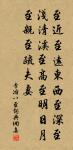 至近至遠東西至深至
淺清溪至高至明日月
至親至疏夫妻
李冶八至